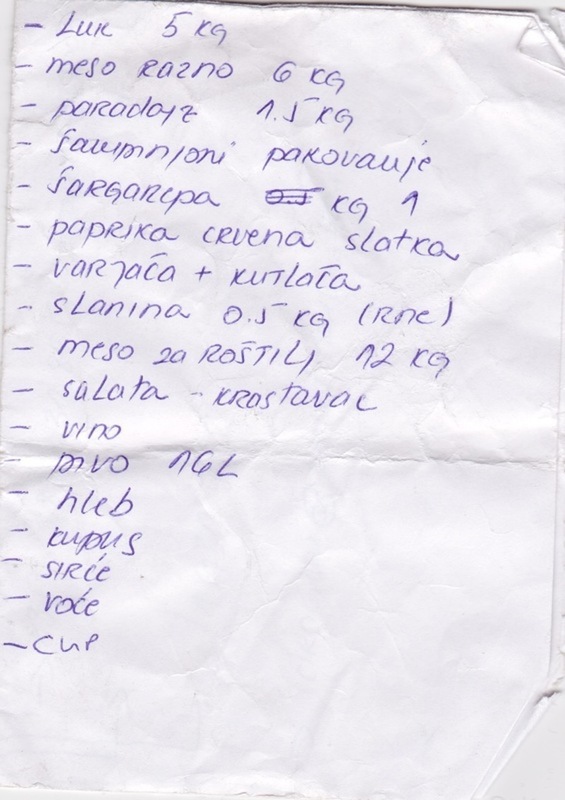 - Luk 5 kg
- meso razno 6 kg
- paradajz 1.5 kg
- šampinjoni pakovanje
- šargarepa kg 1
- paprika crvena slatka
- varjača + kutlača
- slanina 0.5 kg (RNE)
- meso za roštilj 12 kg
- salata - krastavac
- vino
- pivo 16 L
- hleb
- kupus
- sirće
- voće
- CUP